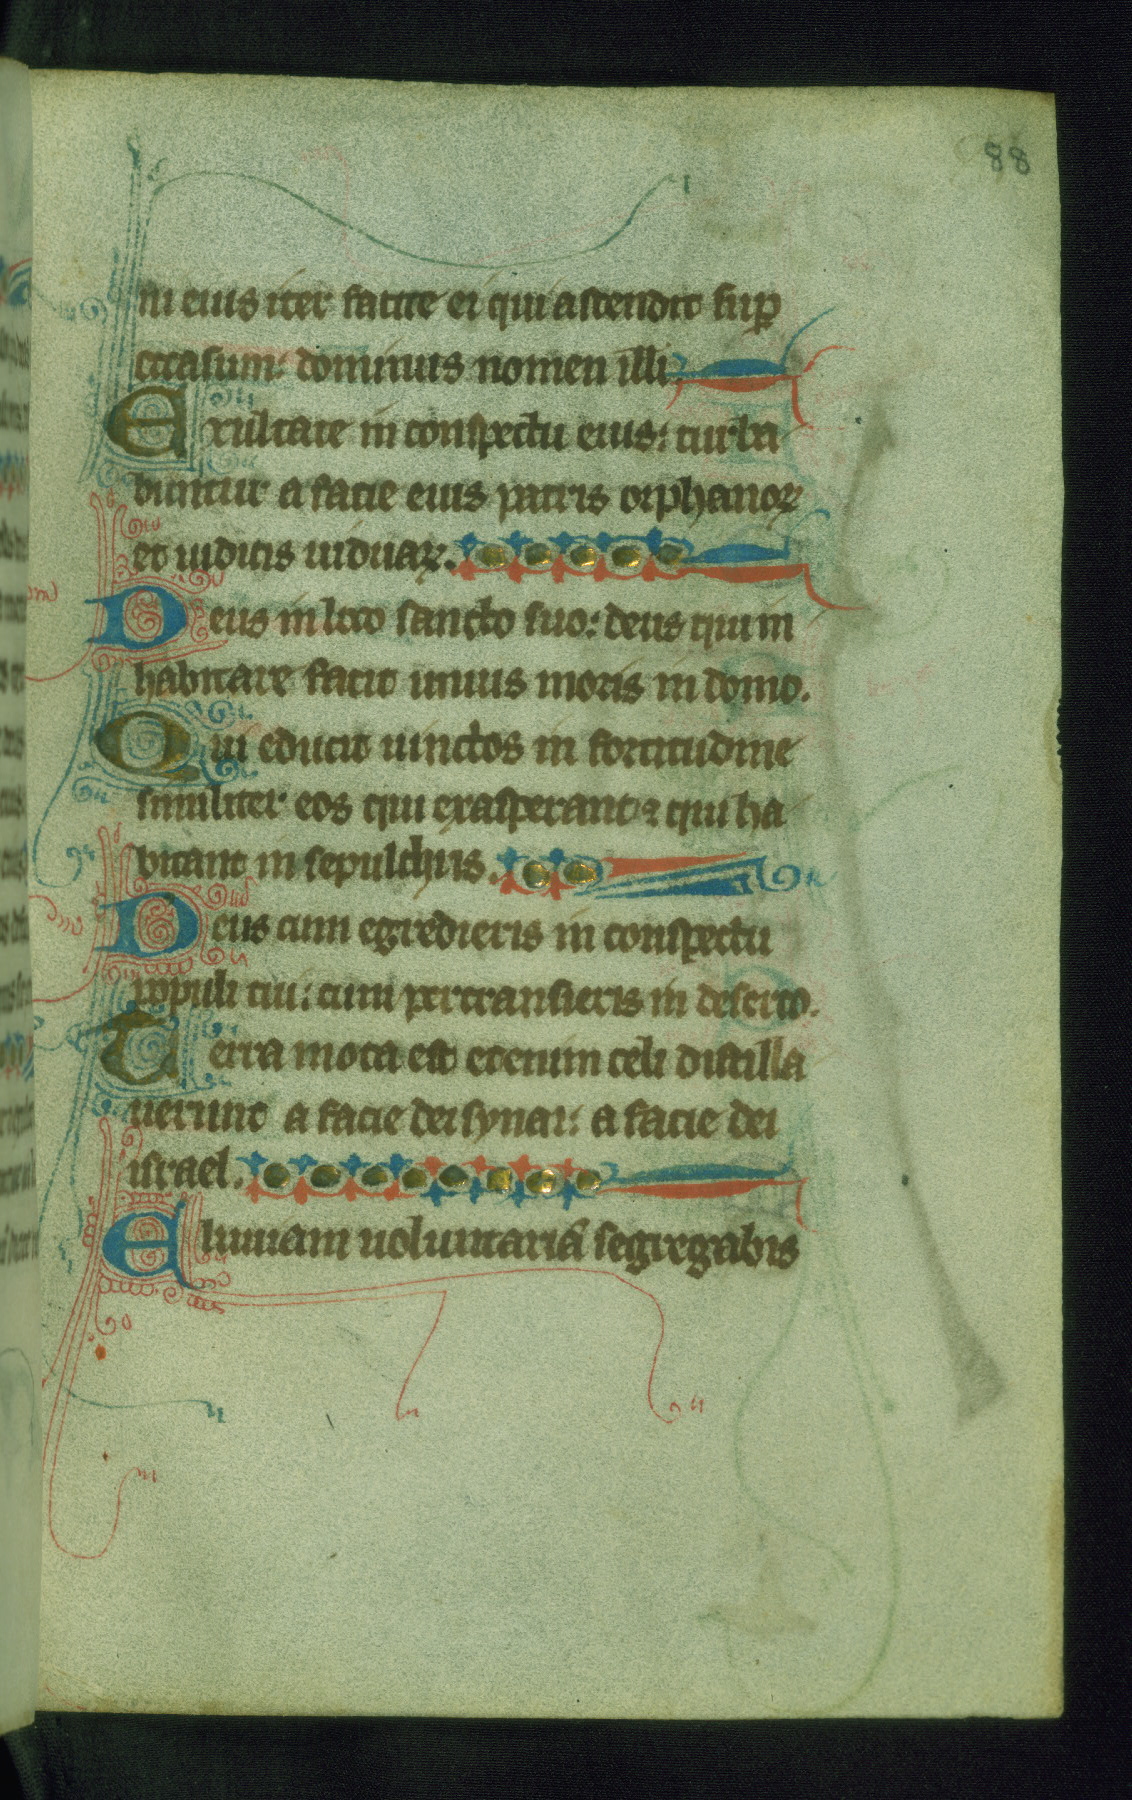 88
ni eius iter facite ei qui ascendit sup
occasum: dominus nomen illi.
Exultate in conspectu eius: turba
buntur a facie eius patris orphanoꝝ
et iudicis uiduaꝝ.
Deus in loco sancto suo: deus qui in
habitare facit unius moris in domo.
Qui educit uinctos in fortitudine
similiter eos qui exasperant ⁊ qui ha
bitant in sepulchris.
Deus cum egredieris in conspectu
populi tui: cum pertransieris in deserto.
Terra mota est etenim celi distilla
uerunt a facie dei synai: a facie dei
israel.
Pluuiam uoluntariā segregabis